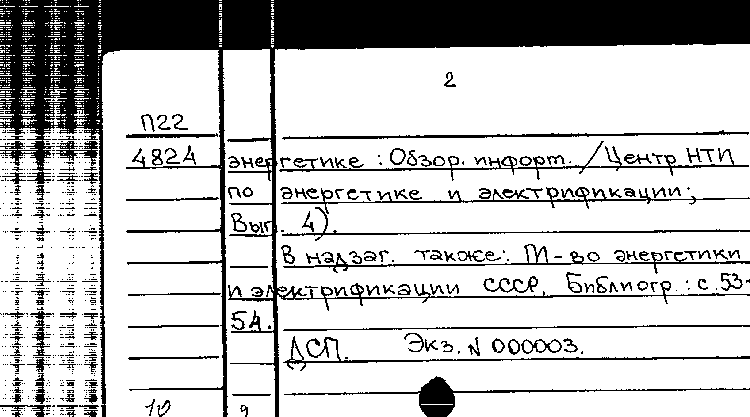 2
П22
4824 энергетике : Обзор. информ. / Центр НТИ
по энергетике и электрификации;
Вып. 4).
В надзаг. также: М-во энергетики
и электрификации СССР. Библиогр.: с. 53-
54.
ДСП. Экз. N 000003.
10 9